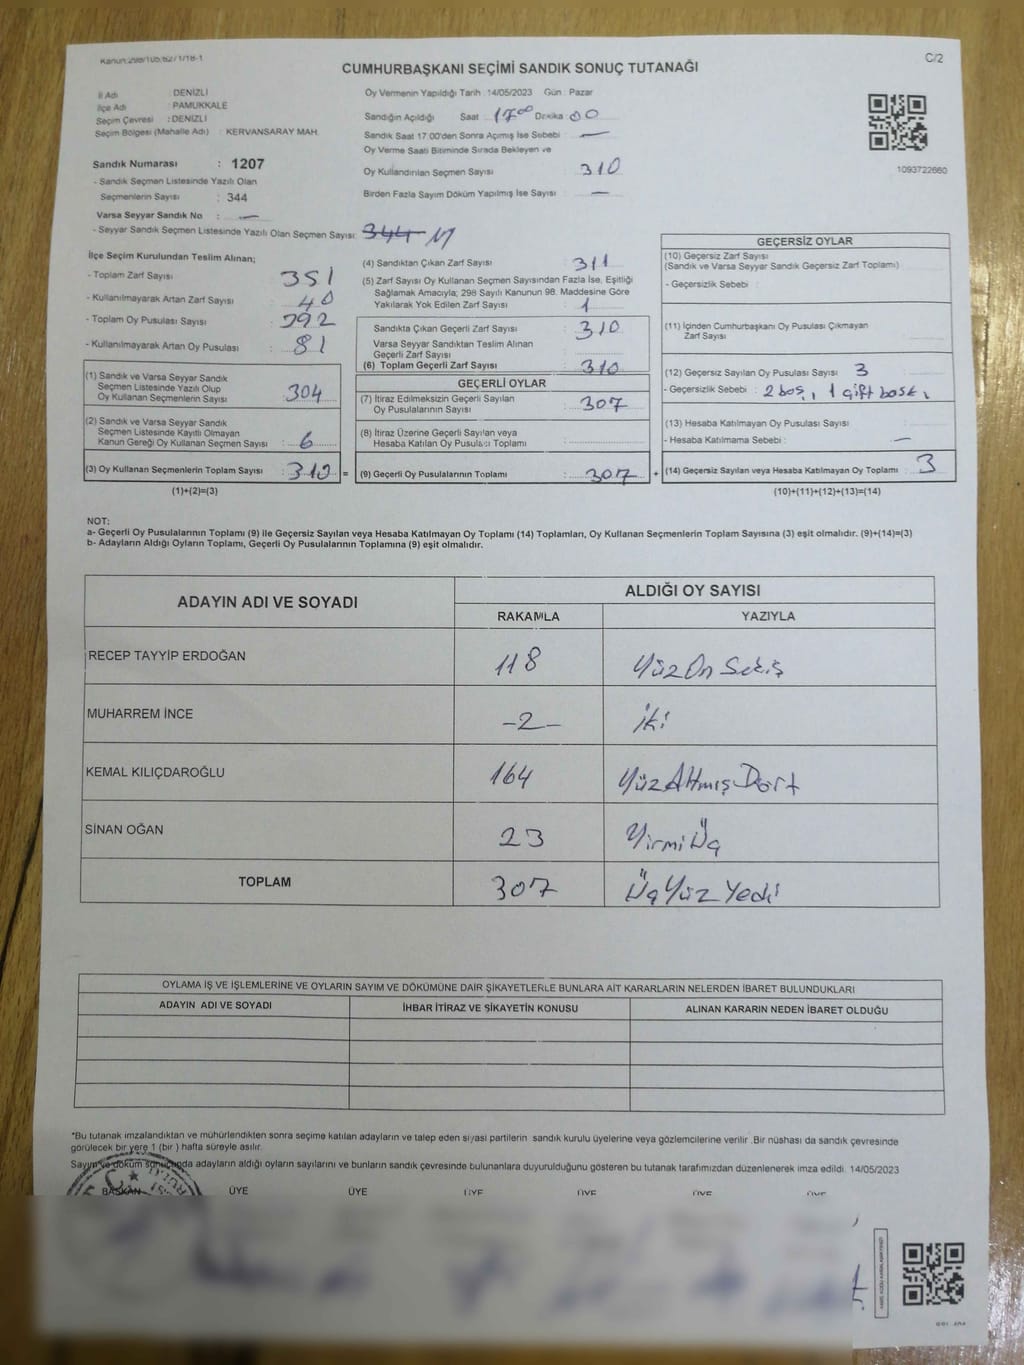 Kanun:298/105,62/1/18-1
C/2
CUMHURBAŞKANI SEÇİMİ SANDIK SONUÇ TUTANAĞI
İl Adı : DENİZLİ
İlçe Adı : PAMUKKALE
Seçim Çevresi : DENİZLİ
Seçim Bölgesi (Mahalle Adı) : KERVANSARAY MAH.
Sandık Numarası : 1207
- Sandık Seçmen Listesinde Yazılı Olan
Seçmenlerin Sayısı : 344
Varsa Seyyar Sandık No : —
- Seyyar Sandık Seçmen Listesinde Yazılı Olan Seçmen Sayısı: 344
Oy Vermenin Yapıldığı Tarih : 14/05/2023 Gün : Pazar
Sandığın Açıldığı Saat 17 00 Dakika 00
Sandık Saat 17.00'den Sonra Açımış İse Sebebi : —
Oy Verme Saati Bitiminde Sırada Bekleyen ve
Oy Kullandırılan Seçmen Sayısı : 310
Birden Fazla Sayım Döküm Yapılmış İse Sayısı : —
1093722660
İlçe Seçim Kurulundan Teslim Alınan;
- Toplam Zarf Sayısı : 351
- Kullanılmayarak Artan Zarf Sayısı : 40
- Toplam Oy Pusulası Sayısı : 392
- Kullanılmayarak Artan Oy Pusulası : 81
(1) Sandık ve Varsa Seyyar Sandık
Seçmen Listesinde Yazılı Olup
Oy Kullanan Seçmenlerin Sayısı : 304
(2) Sandık ve Varsa Seyyar Sandık
Seçmen Listesinde Kayıtlı Olmayan
Kanun Gereği Oy Kullanan Seçmen Sayısı : 6
(3) Oy Kullanan Seçmenlerin Toplam Sayısı : 310 =
(1)+(2)=(3)
(4) Sandıktan Çıkan Zarf Sayısı : 311
(5) Zarf Sayısı Oy Kullanan Seçmen Sayısından Fazla İse, Eşitliği
Sağlamak Amacıyla; 298 Sayılı Kanunun 98. Maddesine Göre
Yakılarak Yok Edilen Zarf Sayısı : 1
Sandıkta Çıkan Geçerli Zarf Sayısı : 310
Varsa Seyyar Sandıktan Teslim Alınan
Geçerli Zarf Sayısı :
(6) Toplam Geçerli Zarf Sayısı : 310
GEÇERLİ OYLAR
(7) İtiraz Edilmeksizin Geçerli Sayılan
Oy Pusulalarının Sayısı : 307
(8) İtiraz Üzerine Geçerli Sayılan veya
Hesaba Katılan Oy Pusulası Toplamı :
(9) Geçerli Oy Pusulalarının Toplamı : 307 +
GEÇERSİZ OYLAR
(10) Geçersiz Zarf Sayısı :
(Sandık ve Varsa Seyyar Sandık Geçersiz Zarf Toplamı)
- Geçersizlik Sebebi :
(11) İçinden Cumhurbaşkanı Oy Pusulası Çıkmayan
Zarf Sayısı :
(12) Geçersiz Sayılan Oy Pusulası Sayısı : 3
- Geçersizlik Sebebi : 2 boş, 1 çift baskı
(13) Hesaba Katılmayan Oy Pusulası Sayısı :
- Hesaba Katılmama Sebebi : —
(14) Geçersiz Sayılan veya Hesaba Katılmayan Oy Toplamı : 3
(10)+(11)+(12)+(13)=(14)
NOT:
a- Geçerli Oy Pusulalarının Toplamı (9) ile Geçersiz Sayılan veya Hesaba Katılmayan Oy Toplamı (14) Toplamları, Oy Kullanan Seçmenlerin Toplam Sayısına (3) eşit olmalıdır. (9)+(14)=(3)
b- Adayların Aldığı Oyların Toplamı, Geçerli Oy Pusulalarının Toplamına (9) eşit olmalıdır.
ADAYIN ADI VE SOYADI
ALDIĞI OY SAYISI
RAKAMLA YAZIYLA
RECEP TAYYİP ERDOĞAN 118 Yüz On Sekiz
MUHARREM İNCE -2- İki
KEMAL KILIÇDAROĞLU 164 Yüz Altmış Dört
SİNAN OĞAN 23 Yirmi Üç
TOPLAM 307 Üç Yüz Yedi
OYLAMA İŞ VE İŞLEMLERİNE VE OYLARIN SAYIM VE DÖKÜMÜNE DAİR ŞİKAYETLERLE BUNLARA AİT KARARLARIN NELERDEN İBARET BULUNDUKLARI
ADAYIN ADI VE SOYADI İHBAR İTİRAZ VE ŞİKAYETİN KONUSU ALINAN KARARIN NEDEN İBARET OLDUĞU
*Bu tutanak imzalandıktan ve mühürlendikten sonra seçime katılan adayların ve talep eden siyasi partilerin sandık kurulu üyelerine veya gözlemcilerine verilir. Bir nüshası da sandık çevresinde
görülecek bir yere 1 (bir) hafta süreyle asılır.
Sayım ve döküm sonucunda adayların aldığı oyların sayılarını ve bunların sandık çevresinde bulunanlara duyurulduğunu gösteren bu tutanak tarafımızdan düzenlenerek imza edildi. 14/05/2023
BAŞKAN ÜYE ÜYE ÜYE ÜYE ÜYE ÜYE